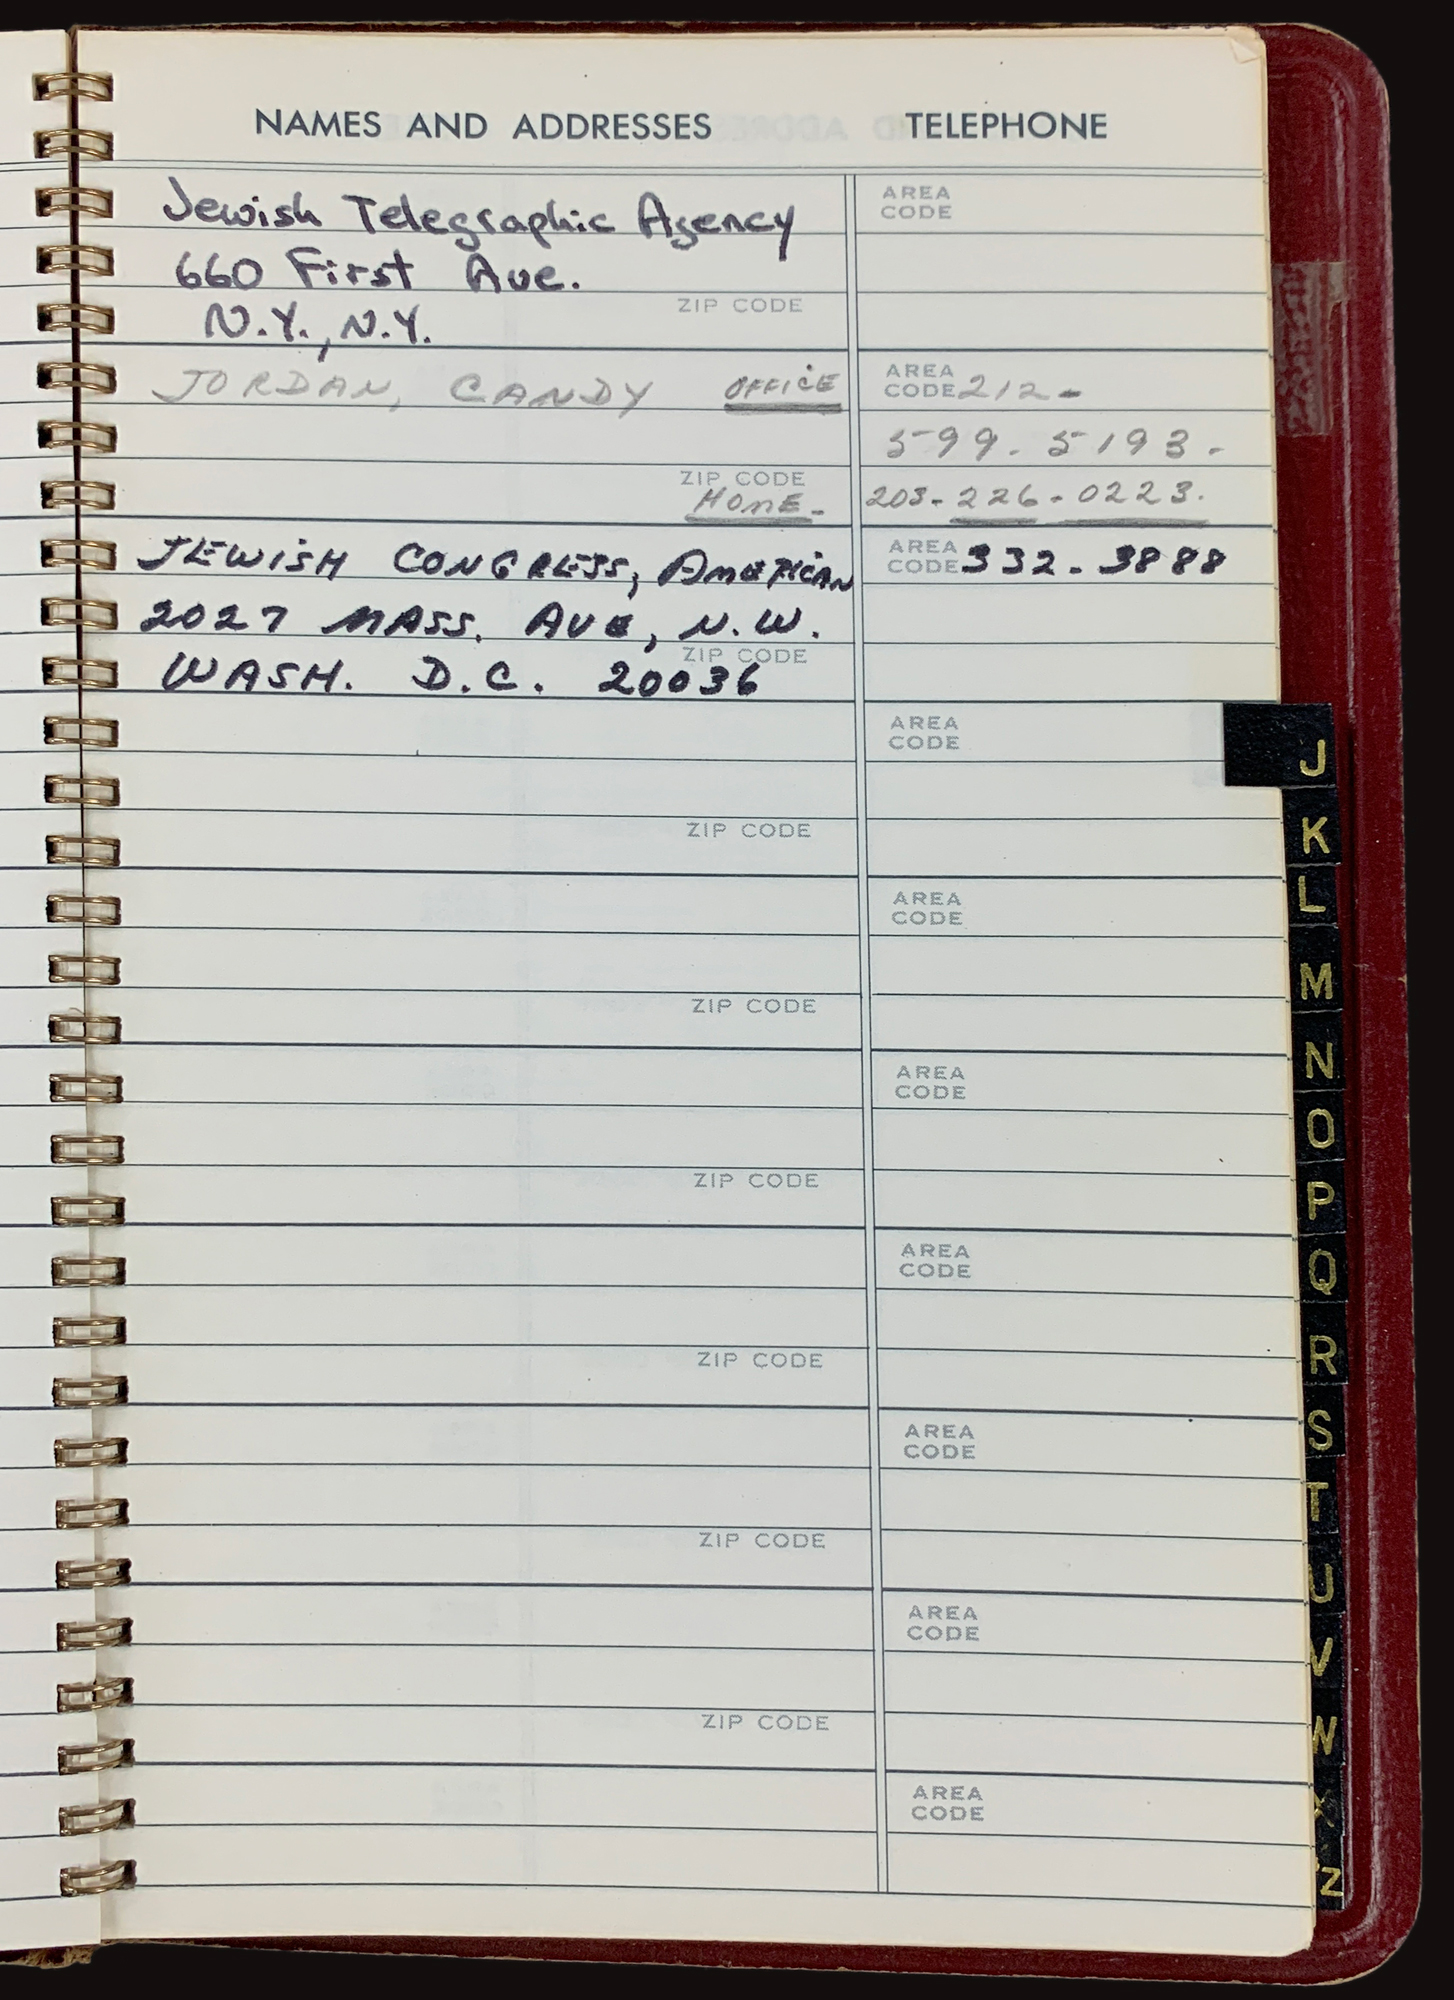 NAMES AND ADDRESSES TELEPHONE
Jewish Telegraphic Agency AREA CODE
660 First Ave.
ZIP CODE
N.Y., N.Y.
JORDAN, CANDY OFFICE AREA CODE 212-
599.5193.
ZIP CODE
HOME- 203-226-0223.
JEWISH CONGRESS, AMERICAN AREA CODE 332-3888
2027 MASS. AVE, N.W.
ZIP CODE
WASH. D.C. 20036
AREA CODE
J
ZIP CODE
K
AREA CODE
L
ZIP CODE
M
AREA CODE
N
O
ZIP CODE
P
AREA CODE
Q
ZIP CODE
R
AREA CODE
S
T
ZIP CODE
U
AREA CODE
V
ZIP CODE
W
AREA CODE
X
Z